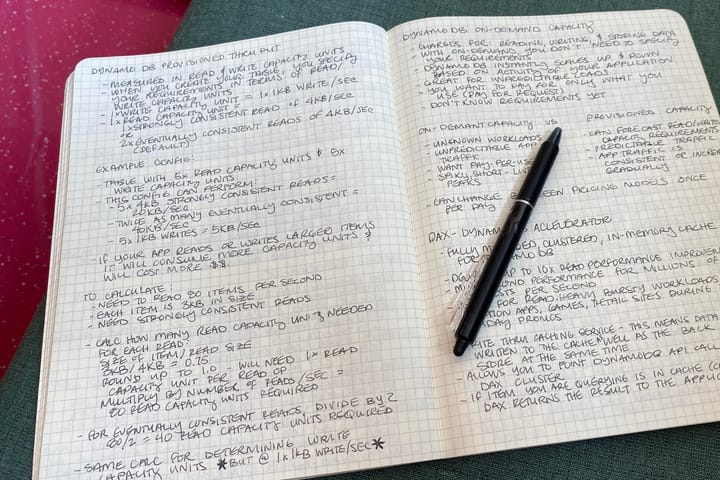 DYNAMO DB PROVISIONED THRU PUT
- MEASURED IN READ & WRITE CAPACITY UNITS
- WHEN YOU CREATE YOUR TABLE, YOU SPECIFY
YOUR REQUIREMENTS IN TERMS OF READ/
WRITE CAPACITY UNITS
- 1 X WRITE CAPACITY UNIT = 1 X 1KB WRITE/SEC
- 1 X READ CAPACITY UNIT =
1 X STRONGLY CONSISTENT READ OF 4KB/SEC
OR
2 X EVENTUALLY CONSISTENT READS OF 4KB/SEC
(DEFAULT)
EXAMPLE CONFIG:
- TABLE WITH 5X READ CAPACITY UNITS & 5X
WRITE CAPACITY UNITS
- THIS CONFIG CAN PERFORM:
- 5X 4KB STRONGLY CONSISTENT READS =
20KB/SEC
- TWICE AS MANY EVENTUALLY CONSISTENT =
40KB/SEC
- 5X 1KB WRITES = 5KB/SEC
- IF YOUR APP READS OR WRITES LARGER ITEMS
IT WILL CONSUME MORE CAPACITY UNITS &
WILL COST MORE $$.
TO CALCULATE:
- NEED TO READ 80 ITEMS PER SECOND
- EACH ITEM IS 3KB IN SIZE
- NEED STRONGLY CONSISTENT READS
- CALC HOW MANY READ CAPACITY UNITS NEEDED
FOR EACH READ:
SIZE OF ITEM / READ SIZE
3KB/4KB = 0.75
ROUND UP TO 1.0 WILL NEED 1X READ
CAPACITY UNIT PER READ OP
MULTIPLY BY NUMBER OF READS/SEC =
80 READ CAPACITY UNITS REQUIRED
- FOR EVENTUALLY CONSISTENT READS, DIVIDE BY 2
80/2 = 40 READ CAPACITY UNITS REQUIRED
- SAME CALC FOR DETERMINING WRITE
CAPACITY UNITS *BUT @ 1X1KB WRITE/SEC*
DYNAMO DB ON-DEMAND CAPACITY
- CHARGES FOR: READING, WRITING, & STORING DATA
- WITH ON-DEMAND, YOU DON'T NEED TO SPECIFY
YOUR REQUIREMENTS
- DYNAMO DB INSTANTLY SCALES UP & DOWN
BASED ON ACTIVITY OF YOUR APPLICATION
- GREAT FOR UNPREDICTABLE LOADS
- YOU WANT TO PAY FOR ONLY WHAT YOU
USE (PAY PER REQUEST)
- DON'T KNOW REQUIREMENTS YET
ON-DEMAND CAPACITY VS
- UNKNOWN WORKLOADS
- UNPREDICTABLE APP
TRAFFIC
- WANT PAY-PER-USE
- SPIKY SHORT-LIVED
PEAKS
PROVISIONED CAPACITY
- CAN FORECAST READ/WRITE
CAPACITY REQUIREMENTS
- PREDICTABLE TRAFFIC
- APP TRAFFIC IS
CONSISTENT OR INCREA
GRADUALLY
- CAN CHANGE BETWEEN PRICING MODELS ONCE
PER DAY
DAX - DYNAMO ACCELERATOR
- FULLY MANAGED, CLUSTERED, IN-MEMORY CACHE
FOR DYNAMO DB
UP TO 10X READ PERFORMANCE IMPROVE
PERFORMANCE FOR MILLIONS OF
PER SECOND
FOR READ-HEAVY BURSTY WORKLOADS
APPS, GAMES, RETAIL SITES DURING
DAY PROMOS
THRU CACHING SERVICE - THIS MEANS DATA
WRITTEN TO THE CACHE AS WELL AS THE BACK
STORE AT THE SAME TIME
- ALLOWS YOU TO POINT DYNAMODB API CALL
DAX CLUSTER
- IF ITEM YOU ARE QUERYING IS IN CACHE
DAX RETURNS THE RESULT TO THE APPLIC